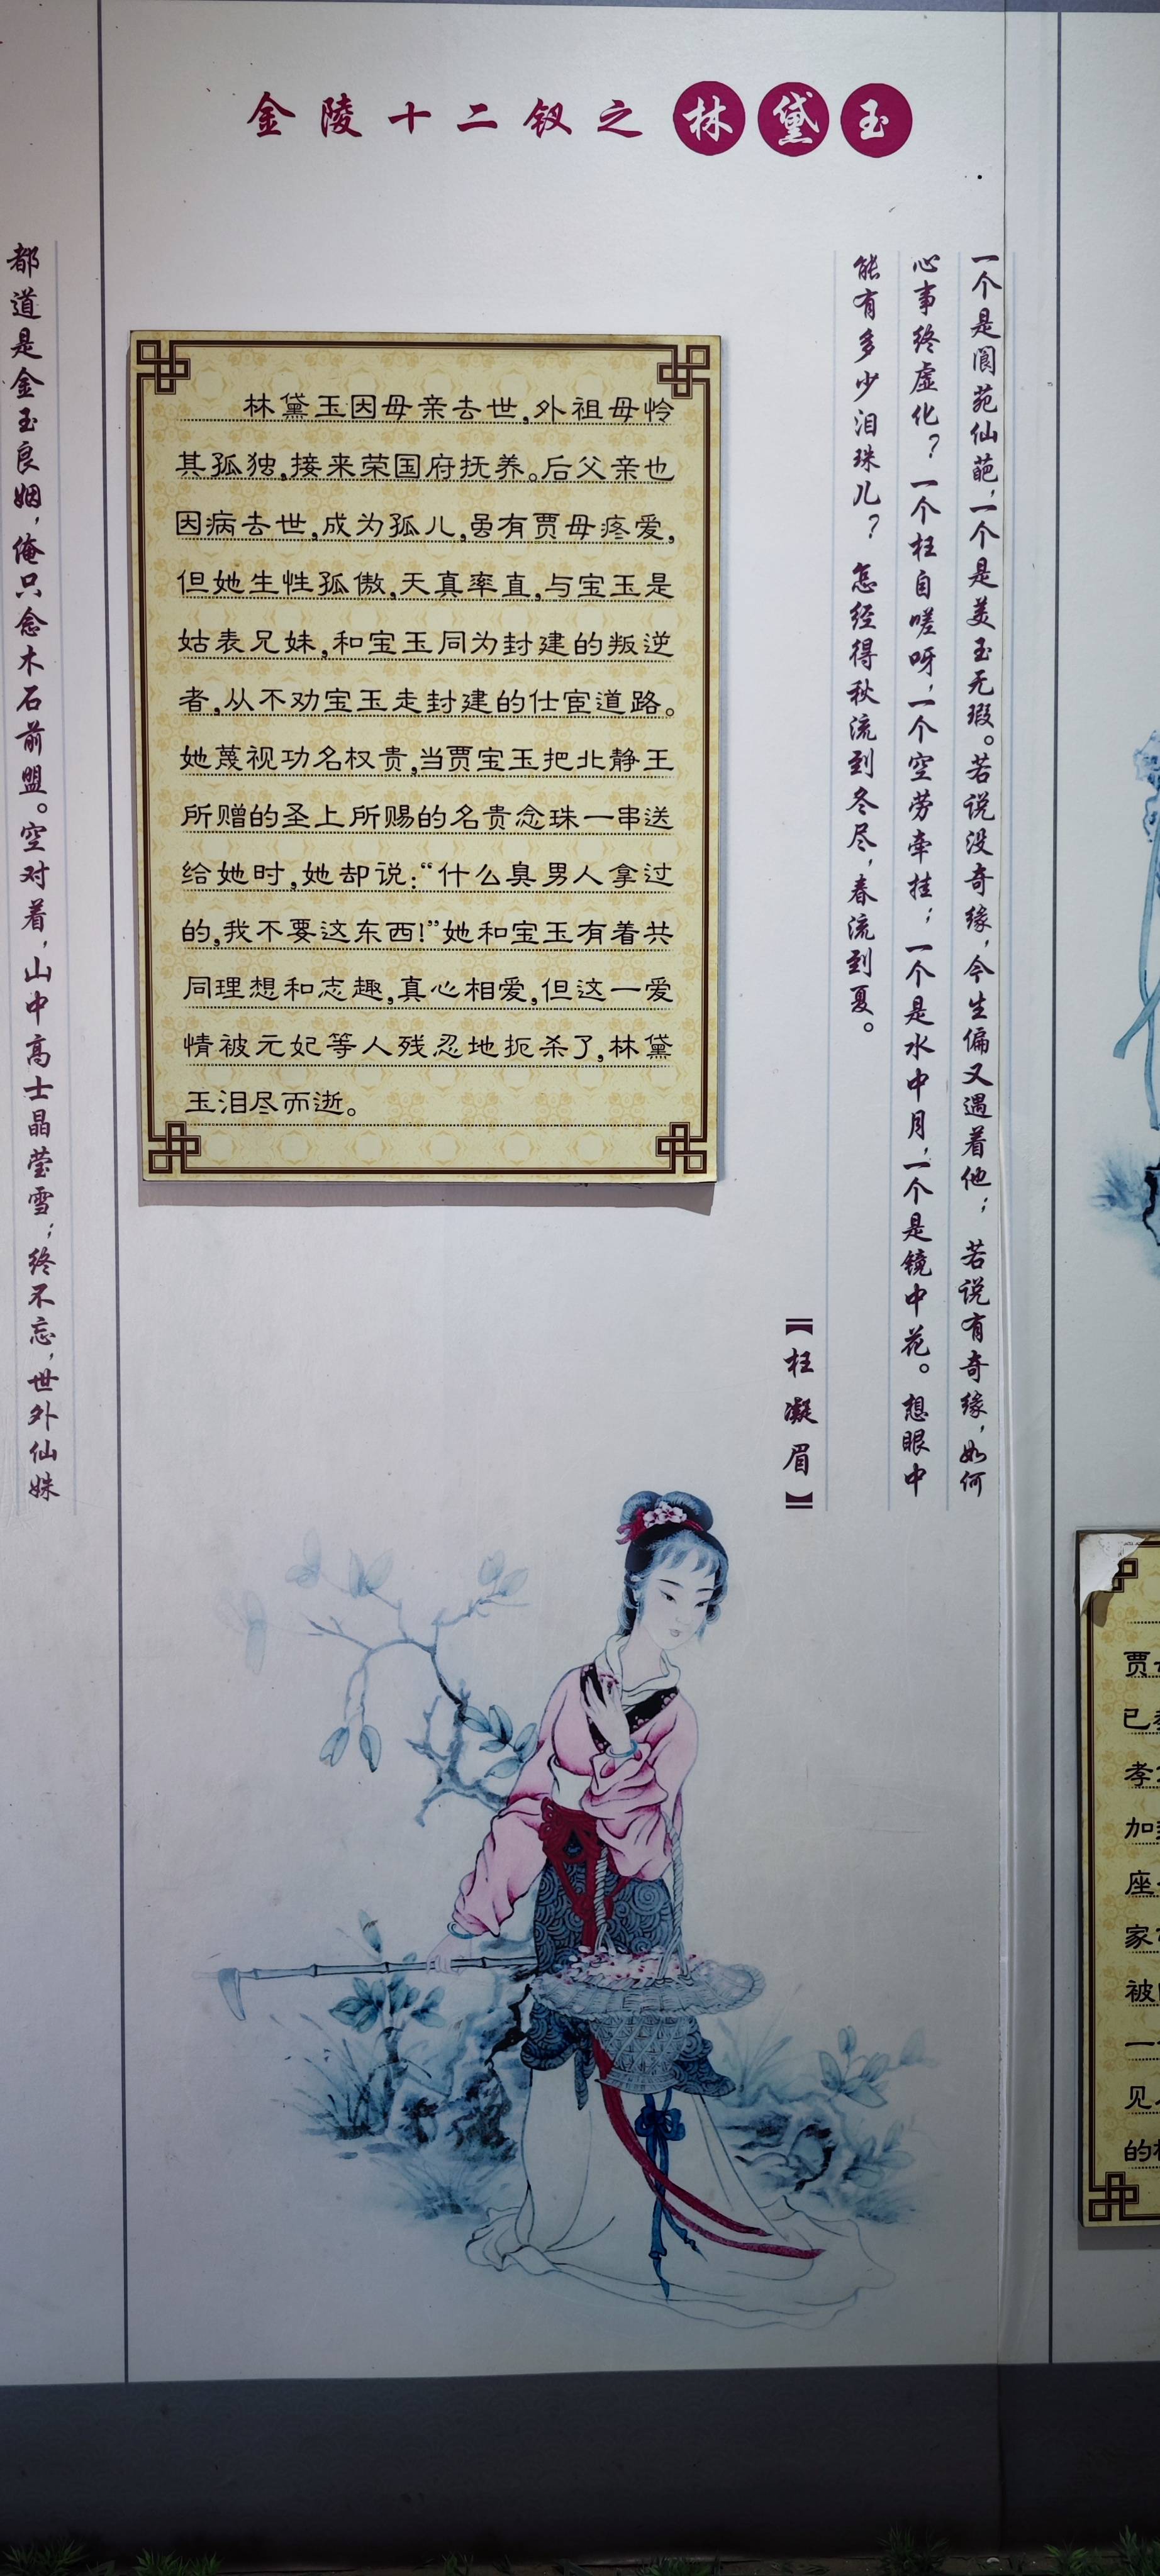 金陵十二钗之林黛玉
一个是阆苑仙葩，一个是美玉无瑕。若说没奇缘，今生偏又遇着他；若说有奇缘，如何
心事终虚化？一个枉自嗟呀，一个空劳牵挂；一个是水中月，一个是镜中花。想眼中
能有多少泪珠儿？怎经得秋流到冬尽，春流到夏。
【枉凝眉】
林黛玉因母亲去世,外祖母怜
其孤独,接来荣国府抚养。后父亲也
因病去世,成为孤儿,虽有贾母疼爱,
但她生性孤傲,天真率直,与宝玉是
姑表兄妹,和宝玉同为封建的叛逆
者,从不劝宝玉走封建的仕宦道路。
她蔑视功名权贵,当贾宝玉把北静王
所赠的圣上所赐的名贵念珠一串送
给她时,她却说:“什么臭男人拿过
的,我不要这东西!”她和宝玉有着共
同理想和志趣,真心相爱,但这一爱
情被元妃等人残忍地扼杀了,林黛
玉泪尽而逝。
都道是金玉良姻，俺只念木石前盟。空对着，山中高士晶莹雪；终不忘，世外仙姝
贾
已
孝
加
座
家
被
一
见
的